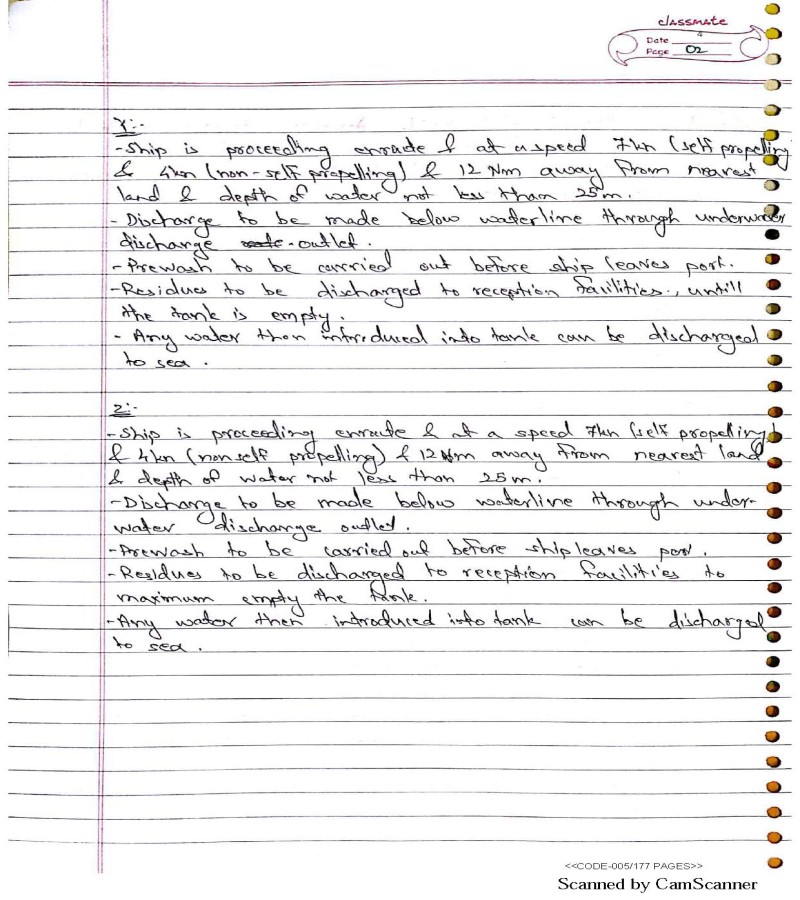 classmate
Date 4
Page 02
Y:-
- Ship is proceeding enroute & at a speed 7kn (self propelling
& 4kn (non-self propelling) & 12 Nm away from nearest
land & depth of water not less than 25m.
- Discharge to be made below waterline through underwater
discharge outlet.
- Prewash to be carried out before ship leaves port.
- Residues to be discharged to reception facilities., untill
the tank is empty.
- Any water then introduced into tank can be discharged
to sea.
Z:-
- Ship is proceeding enroute & at a speed 7kn (self propelling)
& 4kn (non self propelling) & 12 Nm away from nearest land
& depth of water not less than 25m.
- Discharge to be made below waterline through under-
water discharge outlet.
- Prewash to be carried out before ship leaves port.
- Residues to be discharged to reception facilities to
maximum empty the tank.
- Any water then introduced into tank can be discharged
to sea.
<<CODE-005/177 PAGES>>
Scanned by CamScanner